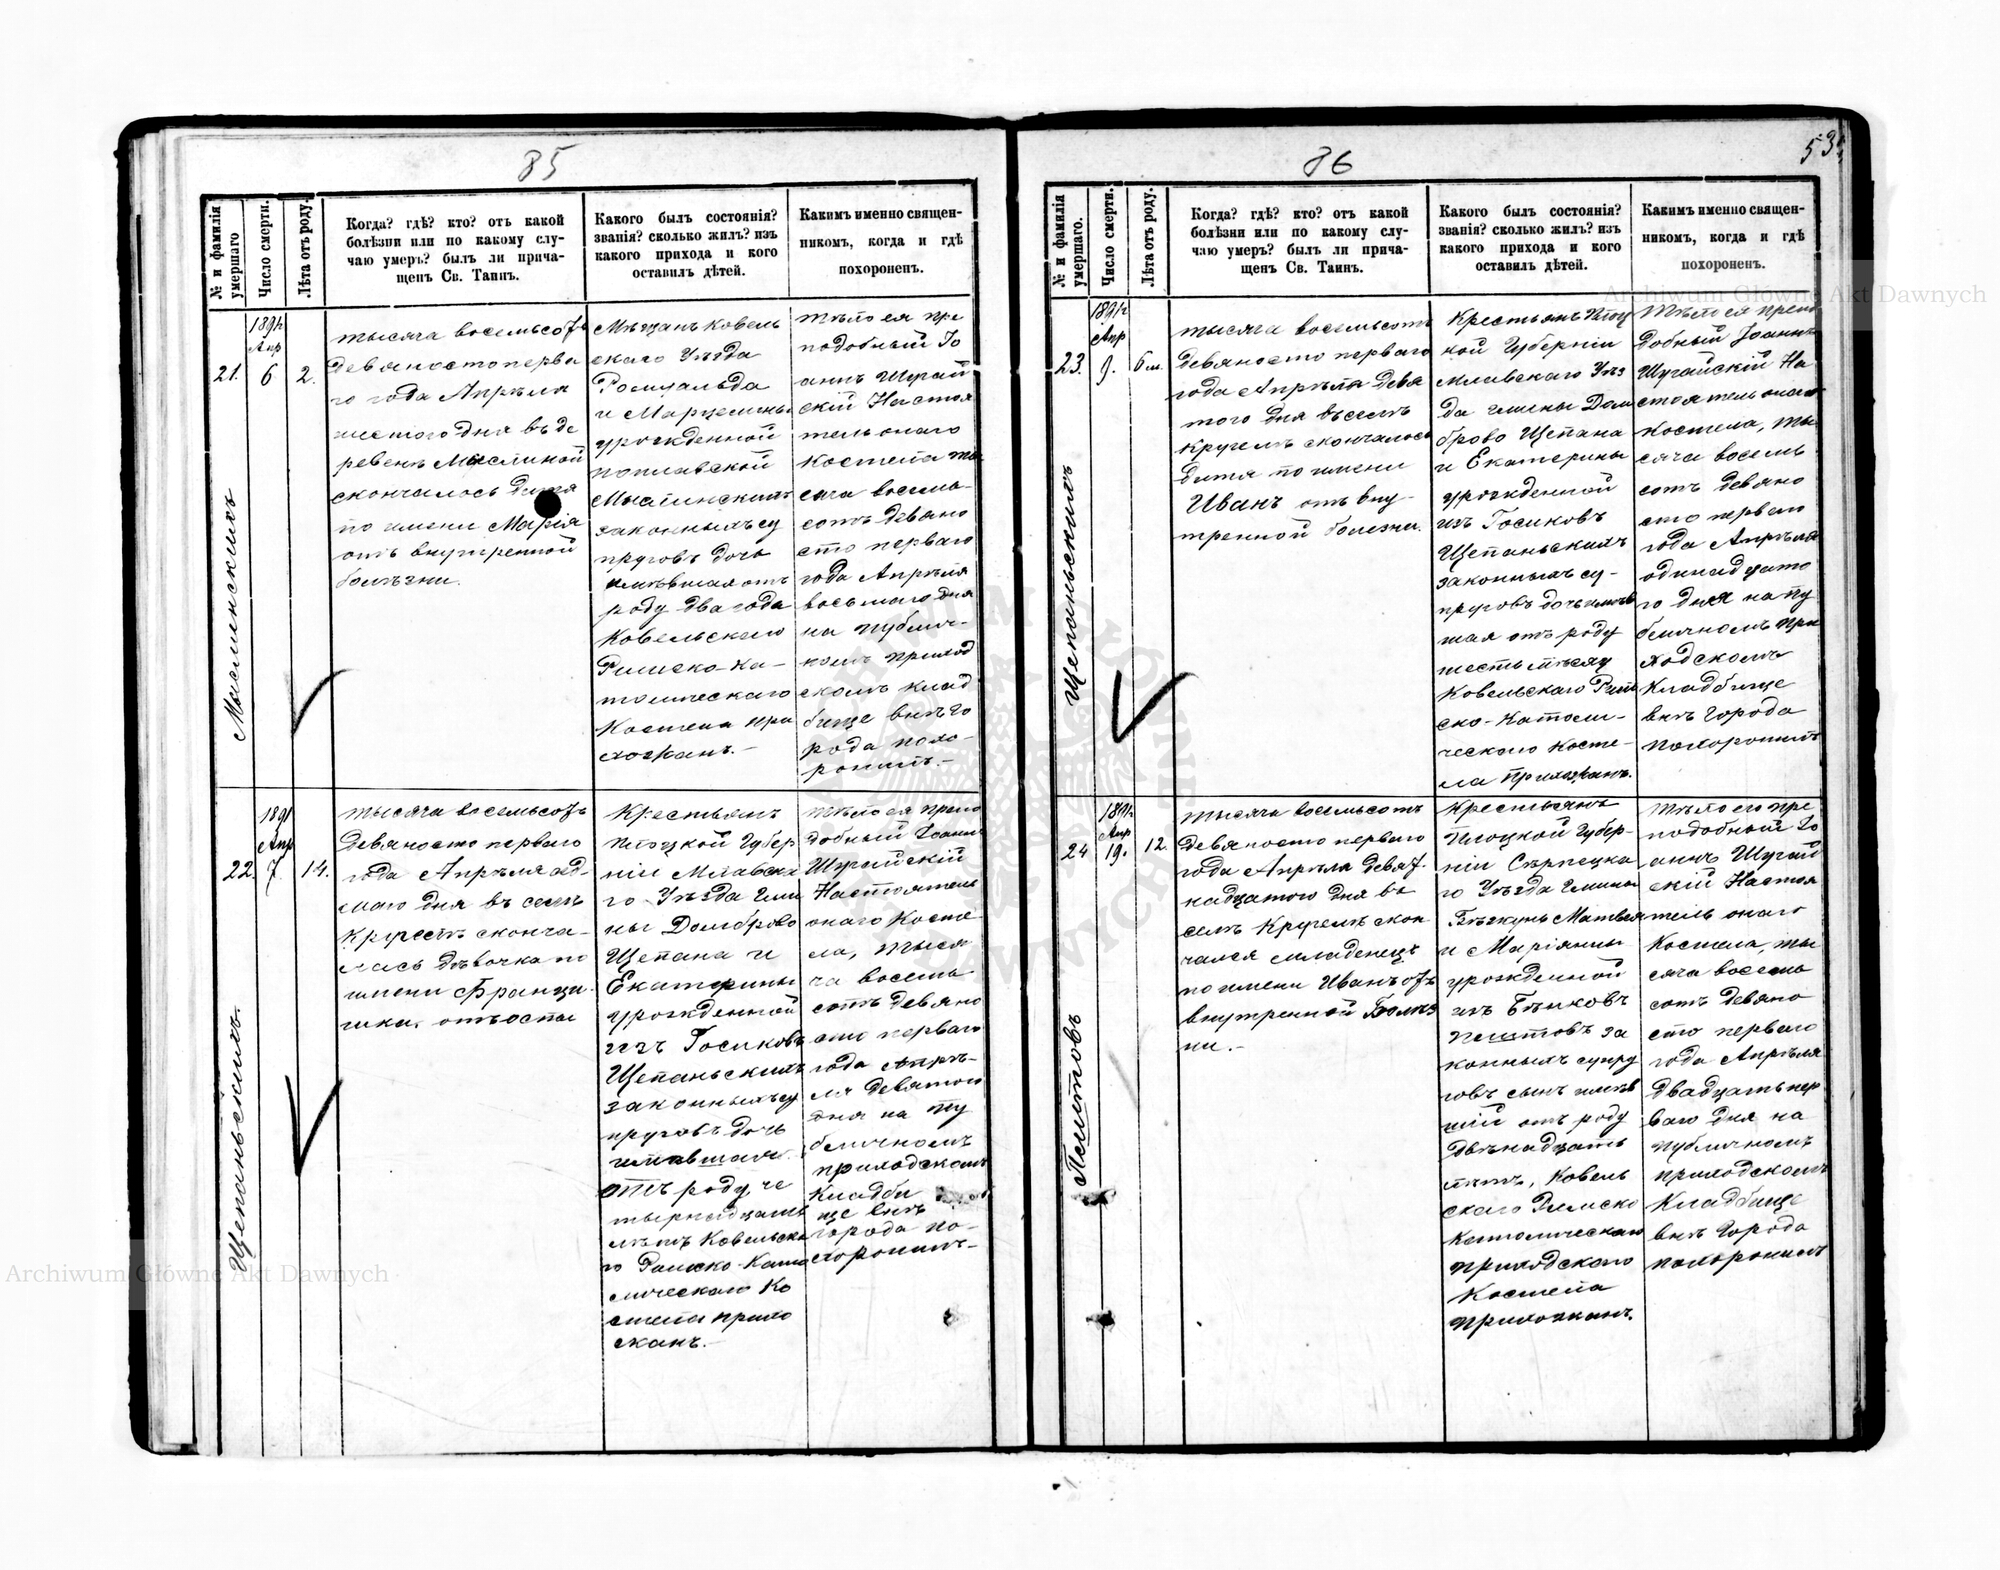 85
№ и фамилія умершаго
Число смерти.
Лѣта отъ роду.
Когда? гдѣ? кто? отъ какой
болѣзни или по какому слу-
чаю умеръ? былъ ли прича-
щенъ Св. Таинъ.
Какого былъ состоянія?
званія? сколько жилъ? изъ
какого прихода и кого
оставилъ дѣтей.
Какимъ именно священ-
никомъ, когда и гдѣ
похороненъ.
1891
Апр
21.
6
2.
Мыслинскихъ
тысяча восемьсотъ
девяносто перва
го года Апрѣля
шестого дня въ де
ревнѣ
скончалось дитя
по имени Марія
отъ внутренной
болѣзни.
Мѣщанъ Ковель
скаго Уѣзда
Ромуальда
и Марцелины
урожденной
поплавской
законныхъ су
пруговъ дочь
имѣвшая отъ
роду два года
Ковельского
Римско-Ка-
толическаго
Костела при
хожанъ.-
Тѣло ея пре
подобный Іо
аннъ Шугай
скій Настоя
тель онаго
Костела ты
сяча восемь-
сотъ девяно
сто перваго
года Апрѣля
восьмаго дня
на публич-
номъ приход
скомъ клад
бище внѣ го
рода похо-
ронилъ.-
1891
Апр
22.
7
14.
Щепаньскихъ.
тысяча восемьсотъ
девяносто перваго
года Апрѣля сед-
маго дня въ селѣ
сконча-
лась дѣвочка по
имени Франци
шка, отъ оспы
Крестьянъ
Плоцкой Губер
ніи Млавска
го Уѣзда Гми
ны Домброво
Щепана и
Екатерины
урожденной
изъ Госиковъ
Щепаньскихъ
законныхъ су
пруговъ дочь
имѣвшая
отъ роду че
тырнадцать
лѣтъ Ковельска
го Римско-Като
лическаго Ко
стела прихо
жанъ.-
Тѣло ея препо
добный Іоаннъ
Шугайскій
Настоятель
онаго Косте
ла, тыся
ча восемь
сотъ девяно
сто перваго
года Апрѣ-
ля девятого
дня на пу
бличномъ
приходскомъ
кладби
ще внѣ
города по-
хоронилъ-
86
53
№ и фамилія умершаго.
Число смерти.
Лѣта отъ роду.
Когда? гдѣ? кто? отъ какой
болѣзни или по какому слу-
чаю умеръ? былъ ли прича-
щенъ Св. Таинъ.
Какого былъ состоянія?
званія? сколько жилъ? изъ
какого прихода и кого
оставилъ дѣтей.
Какимъ именно священ-
никомъ, когда и гдѣ
похороненъ.
1891
Апр
23.
9.
6 м.
Щепаньскихъ
тысяча восемьсотъ
девяносто перваго
года Апрѣля девя
того дня въ селѣ
Кругелъ скончалось
дитя по имени
Иванъ отъ вну-
тренной болезни.
Крестьянъ Плоц
кой Губерніи
Млавскаго Уѣз
да гмины Дом
брово Щепана
и Екатерины
урожденной
изъ Госиковъ
Щепаньскихъ
законныхъ су-
пруговъ дочь имѣв
шая отъ роду
шесть мѣсяц
Ковельскаго Рим
ско-Католи-
ческаго Косте-
ла прихожанъ.
Тѣло ея препо
добный Іоаннъ
Шугайскій На
стоятель онаго
Костела, ты
сяча восемь
сотъ девяно
сто перваго
года Апрѣля
одинадцато
го дня на пу
бличномъ при
ходскомъ
Кладбище
внѣ города
похоронилъ
1891
Апр
24
19.
12.
тысяча восемьсотъ
девяносто перваго
года Апрѣля девят
надцатого дня въ
селѣ Кругелъ скон
чался младенецъ
по имени Иванъ отъ
внутренной Болѣз
ни.-
Крестьянъ
Плоцкой Губер-
ніи Серпецка
го Уѣзда Гмины
Матвея
и Маріянны
урожденной
изъ
за
конныхъ супру
говъ сынъ имѣв
шій отъ роду
двѣнадцать
лѣтъ, Ковель
скаго Римско
Католическаго
приходскаго
Костела
прихожанъ.
Тѣло его пре
подобный Іо
аннъ Шугай
скій Настоя
тель онаго
Костела, ты
сяча восемь
сотъ девяно
сто перваго
года Апрѣля
двадцать пер
ваго дня на
публичномъ
приходскомъ
Кладбище
внѣ города
похоронилъ
Archiwum Główne Akt Dawnych
Archiwum Główne Akt Dawnych